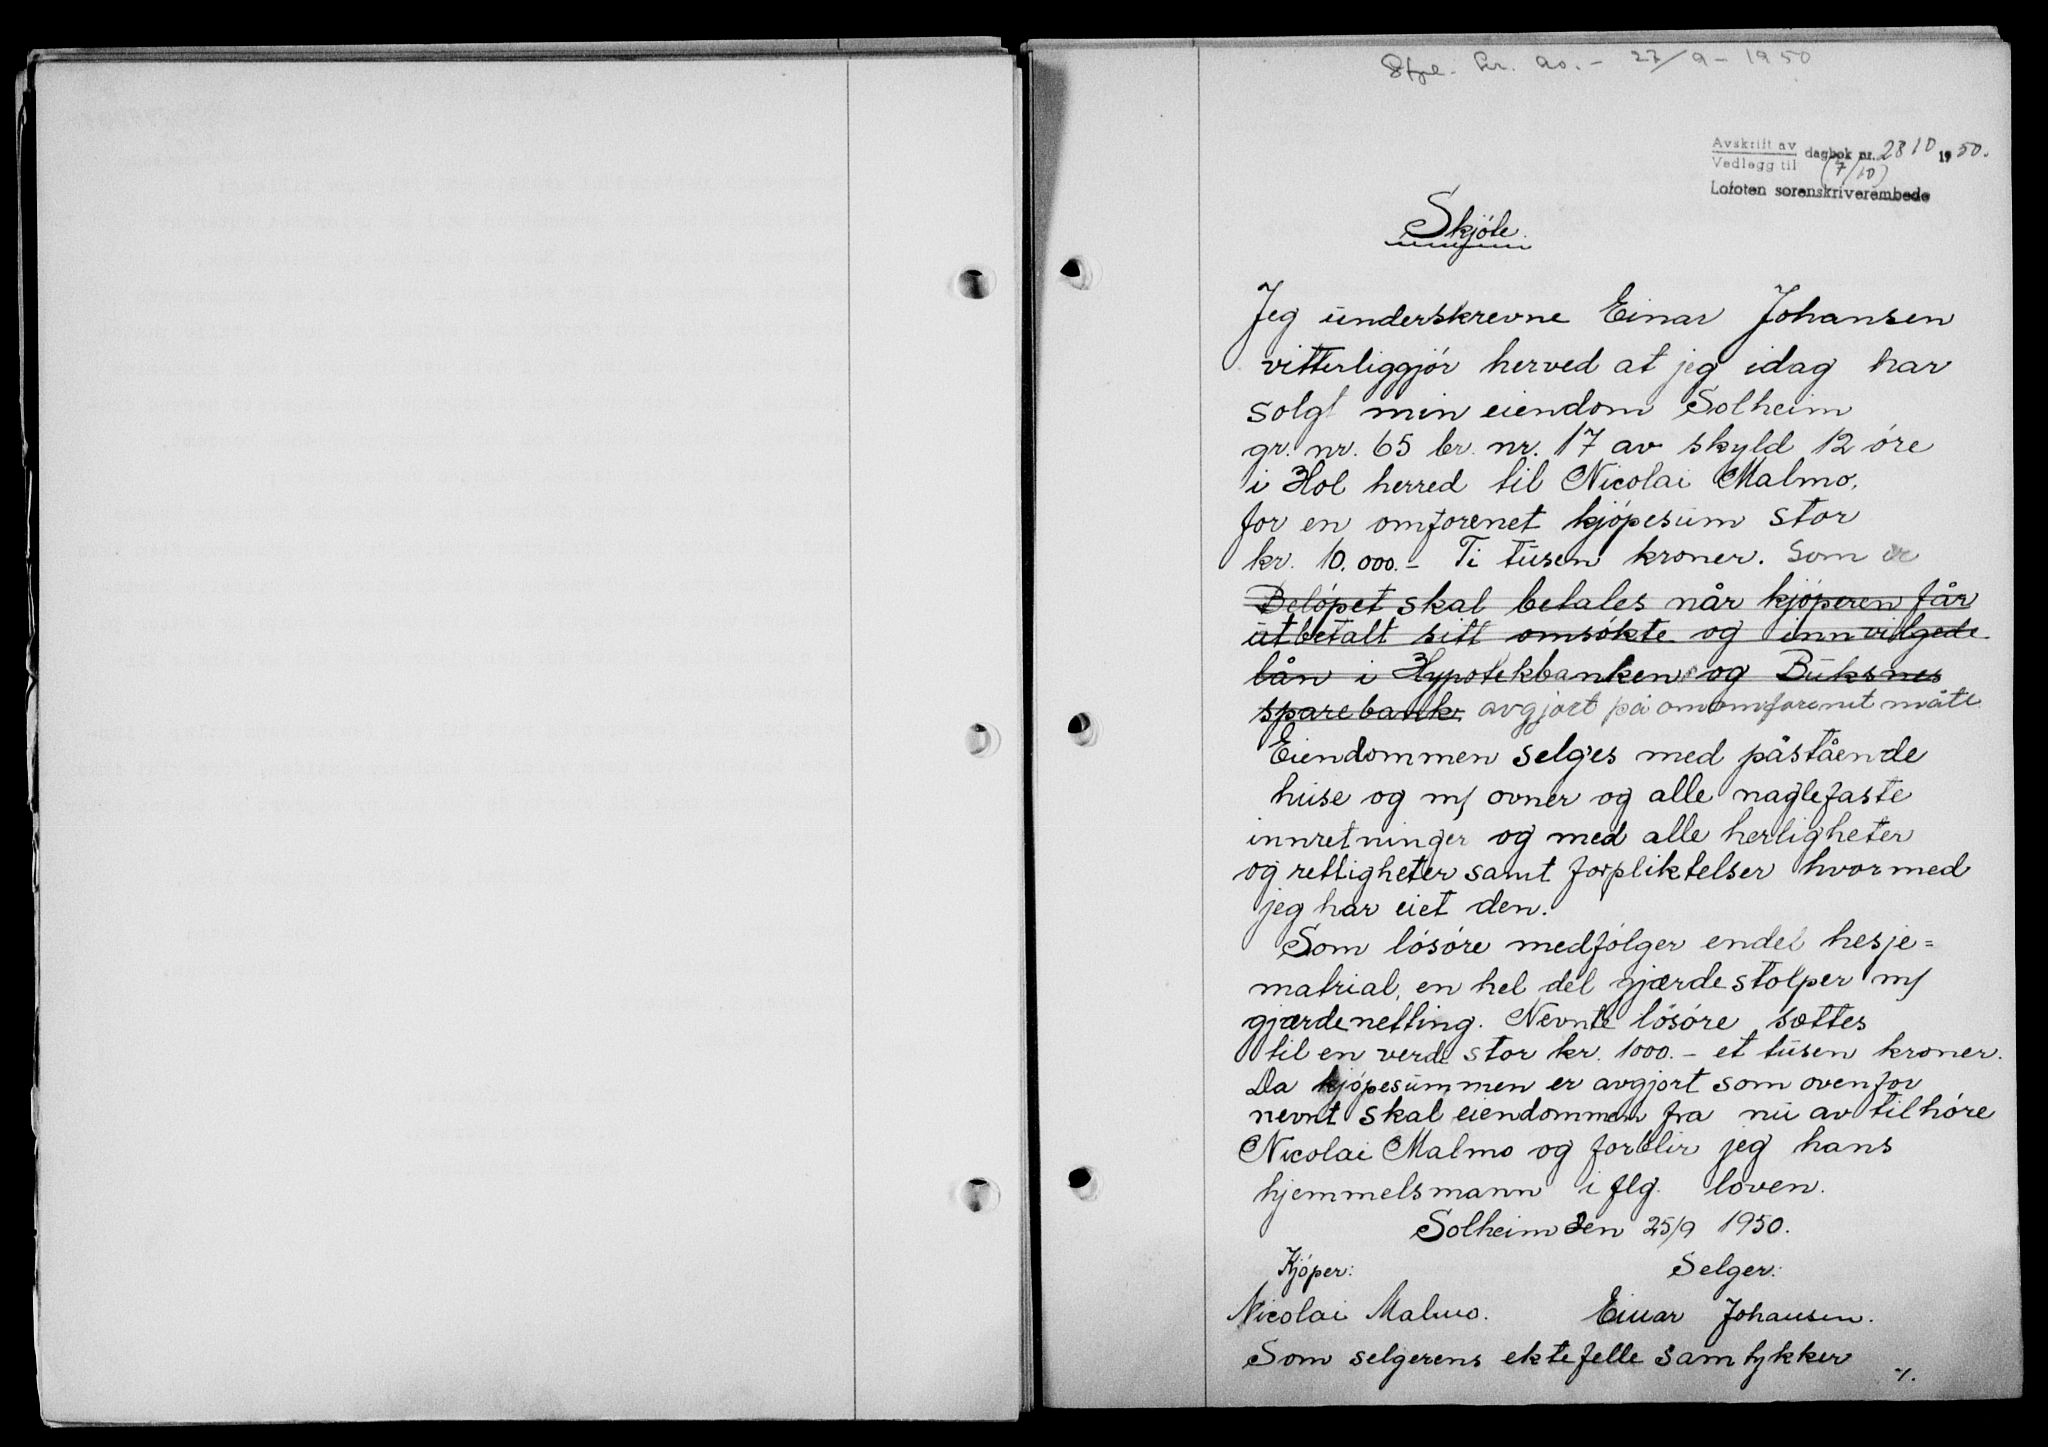 Stpl. kr. 90.- 27/9 - 1950
Avskrift av
Vedlegg til dagbok nr. 2810 1950.
(7/10)
Lofoten sorenskriverembede
Skjöte.
Jeg underskrevne Einar Johansen
vitterliggjör herved at jeg idag har
solgt min eiendom Solheim
gr. nr. 65 br. nr. 17 av skyld 12 öre
i Hol herred til Nicolai Malmo,
for en omforenet kjöpesum stor
kr. 10.000.- Ti tusen kroner. Som er
Belöpet skal betales når kjöperen får
utbetalt sitt omsökte og innvilgede
lån i Hypotekbanken og Buksnes
sparebank. avgjort på omomforenet måte
Eiendommen selges med påstående
huse og m/ ovner og alle naglefaste
innretninger og med alle herligheter
og rettigheter samt forpliktelser hvormed
jeg har eiet den.
Som lösöre medfölger endel hesje=
matrial, en hel del gjærdestolper m/
gjærdenetting. Nevnte lösöre sættes
til en verdi stor kr. 1000.- et tusen kroner.
Da kjöpesummen er avgjort som ovenfor
nevnt skal eiendommen fra nu av tilhöre
Nicolai Malmo og forblir jeg hans
hjemmelsmann i flg. loven.
Solheim den 25/9 1950.
Kjöper: Selger:
Nicolai Malmo. Einar Johansen.
Som selgerens ektefelle samtykker
./.